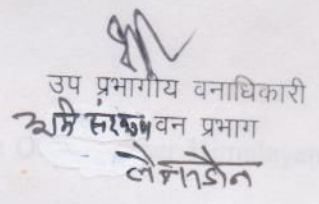 उप प्रभागीय वनाधिकारी
भूमि संरक्षण वन प्रभाग
लैन्सडौन